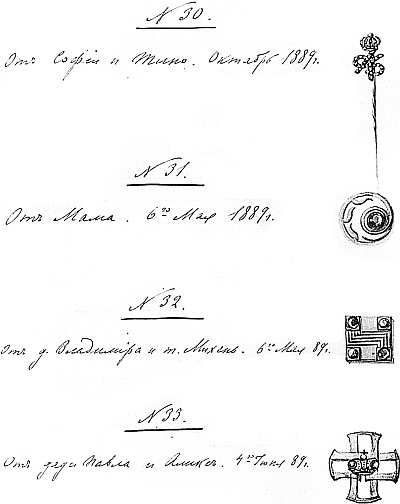 N 30.
Отъ Софіи и Тино. Октябрь 1889 г.
N 31.
Отъ Мама. 6го Мая 1889 г.
N 32.
Отъ д. Владиміра и т. Михень. 6го Мая 89 г.
N 33.
Отъ дяди Павла и Аликсъ. 4го Іюня 89 г.